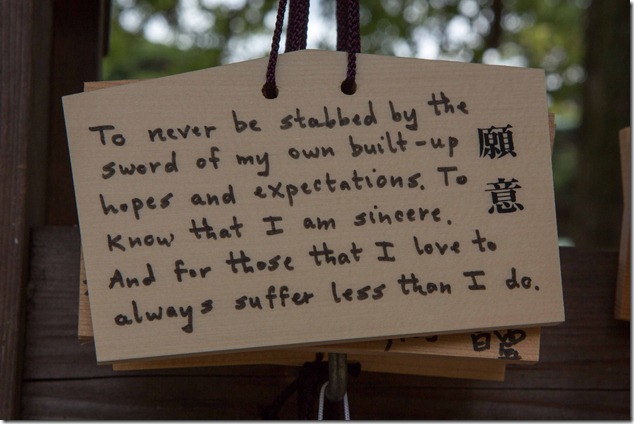 To never be stabbed by the
sword of my own built-up
hopes and expectations. To
know that I am sincere.
And for those that I love to
always suffer less than I do.
願意